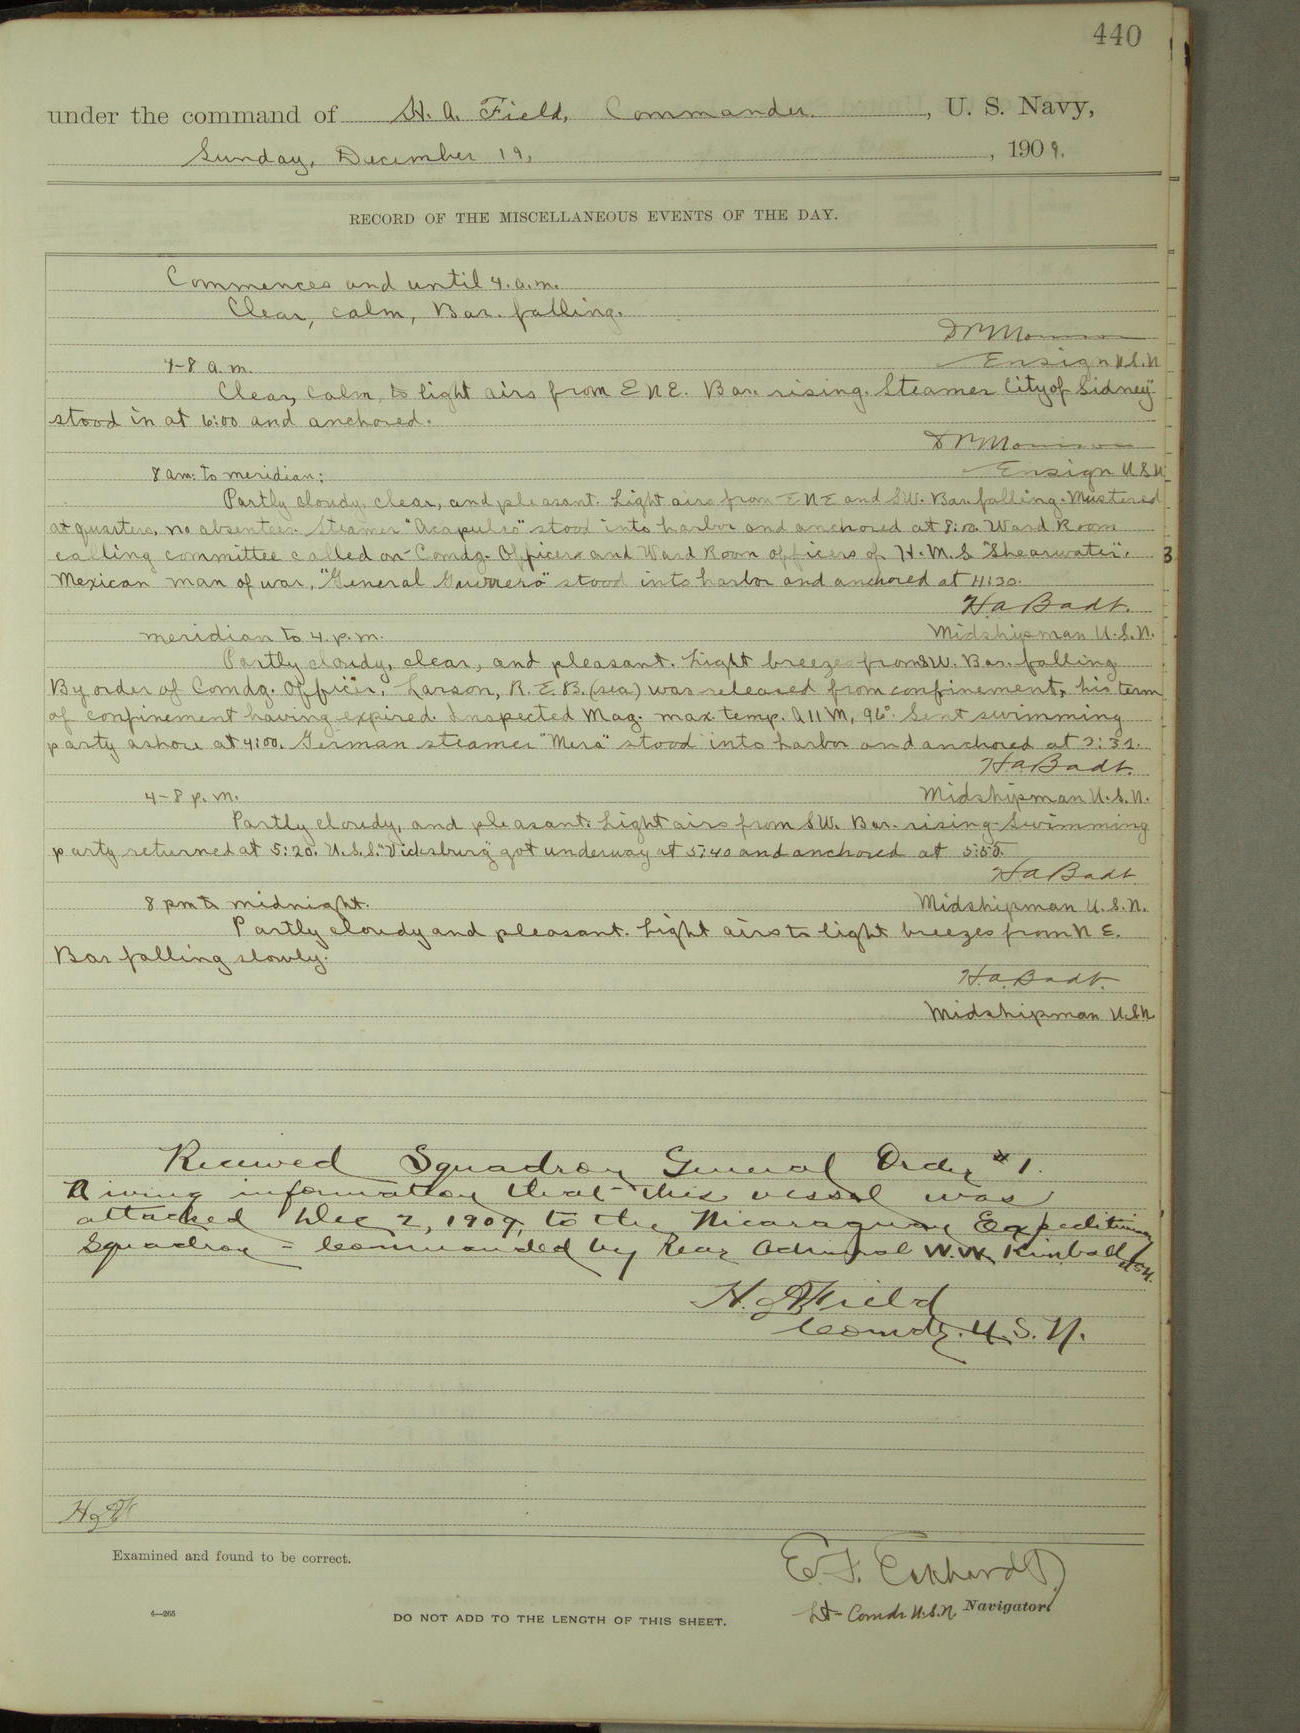 440
under the command of H. A. Field, Commander, U. S. Navy,
Sunday, December 19, 1909.
RECORD OF THE MISCELLANEOUS EVENTS OF THE DAY.
Commences and until 4. a.m.
Clear, calm, Bar. falling.
Ensign U.S.N
4-8 a.m.
Clear, calm, to light airs from E N E. Bar. rising. Steamer "City of Sidney"
stood in at 6:00 and anchored.
Ensign U.S.N
8 am: to meridian:
Partly cloudy, clear, and pleasant. Light airs from E N E and SW. Bar. falling. Mustered
at quarters, no absentees. Steamer "Acapulco" stood into harbor and anchored at 8:00. Ward Room
calling committee called on Comdg. Officer and Ward Room officers of H. M. S. "Shearwater".
Mexican man of war, "General Guerrero" stood into harbor and anchored at 11:20.
H.A. Badt.
Midshipman U.S.N.
meridian to 4. p.m.
Partly cloudy, clear, and pleasant. Light breezes from SW. Bar. falling
By order of Comdg. Officer, Larson, R. E. B. (sea) was released from confinement, his term
of confinement having expired. Inspected Mag. max. temp. A11M, 96°. Sent swimming
party ashore at 4:00. German steamer "Mera" stood into harbor and anchored at
H.A. Badt.
Midshipman U.S.N.
4-8 p. m.
Partly cloudy, and pleasant. Light airs from SW. Bar. rising. Swimming
party returned at 5:20. U.S.S. "Vicksburg" got underway at 5:40 and anchored at 5:50.
H.A. Badt
Midshipman U. S. N.
8 pm to midnight.
Partly cloudy and pleasant. Light airs to light breezes from N E.
Bar falling slowly.
H.A. Badt.
Midshipman U.S.N.
3
Received Squadron General Order #1.
Giving information that this vessel was
attached Dec 2, 1909, to the Nicaraguan Expeditionary
Squadron - Commanded by Rear Admiral W. W. Kimball USN.
H. A. Field
Comdr. U.S.N.
H A F
Examined and found to be correct.
E. F. Eckhardt,
Lt-Comdr U.S.N. Navigator.
4—265
DO NOT ADD TO THE LENGTH OF THIS SHEET.